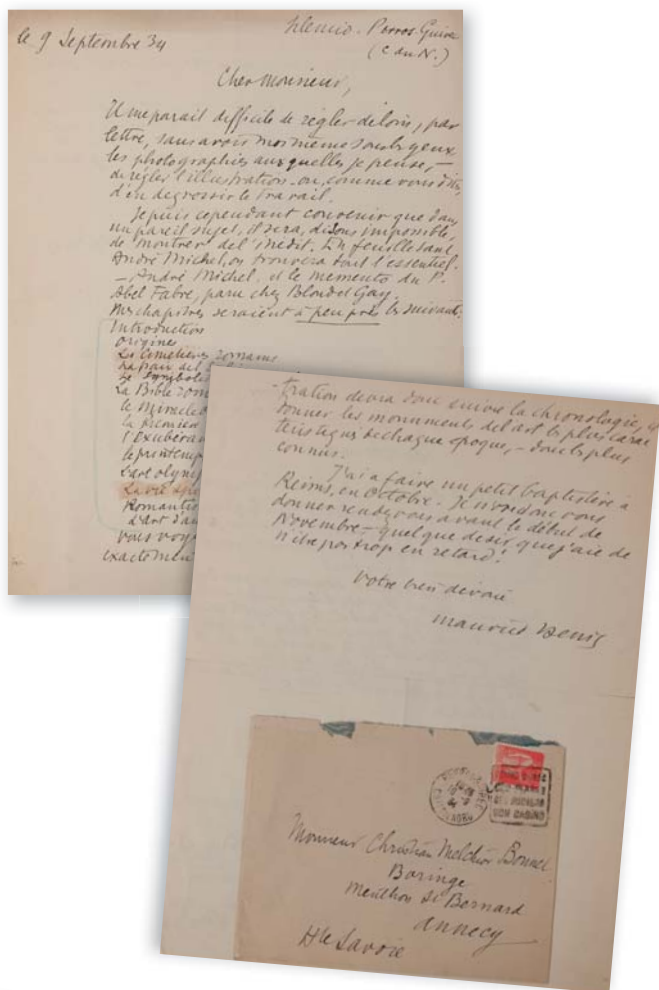 le 9 Septembre 34
Silencio. Perros-Guirec
(C du N.)
Cher Monsieur,
Il me parait difficile de régler de loin, par
lettre, sans avoir moi même sous les yeux
les photographies auxquelles je pense, —
de régler l'illustration ou, comme vous dites,
d'en degrossir le travail.
Je puis cependant convenir que dans
un pareil sujet, il sera, disons impossible,
de montrer de l'inédit. En feuilletant
André Michel, on trouvera tout l'essentiel.
— André Michel, et le memento du P.
Abel Fabre, paru chez Bloud et Gay.
Mes chapitres seraient à peu près les suivants.
Introduction
Origines
Les Cimetières romains
La paix de l'
Le Symbolis
La Bible rom
le Miracle d
la première
l'exubéran
le printemp
L'art olymp
La vie
Romantis
L'art d'au
vous voye
exactemen
-tration devra donc suivre la chronologie, et
donner les monuments de l'art les plus carac
téristiques de chaque époque, — donc les plus
connus.
J'ai à faire un petit baptistère à
Reims, en Octobre. Je n'ose donc vous
donner rendez vous avant le début de
Novembre — quelque désir que j'aie de
n'être pas trop en retard!
Votre bien dévoué
Maurice Denis
PERROS-GUIREC
SON CASINO
Monsieur Christian Melchior Bonnet
Boringe
Menthon St Bernard
Annecy
Hte Savoie